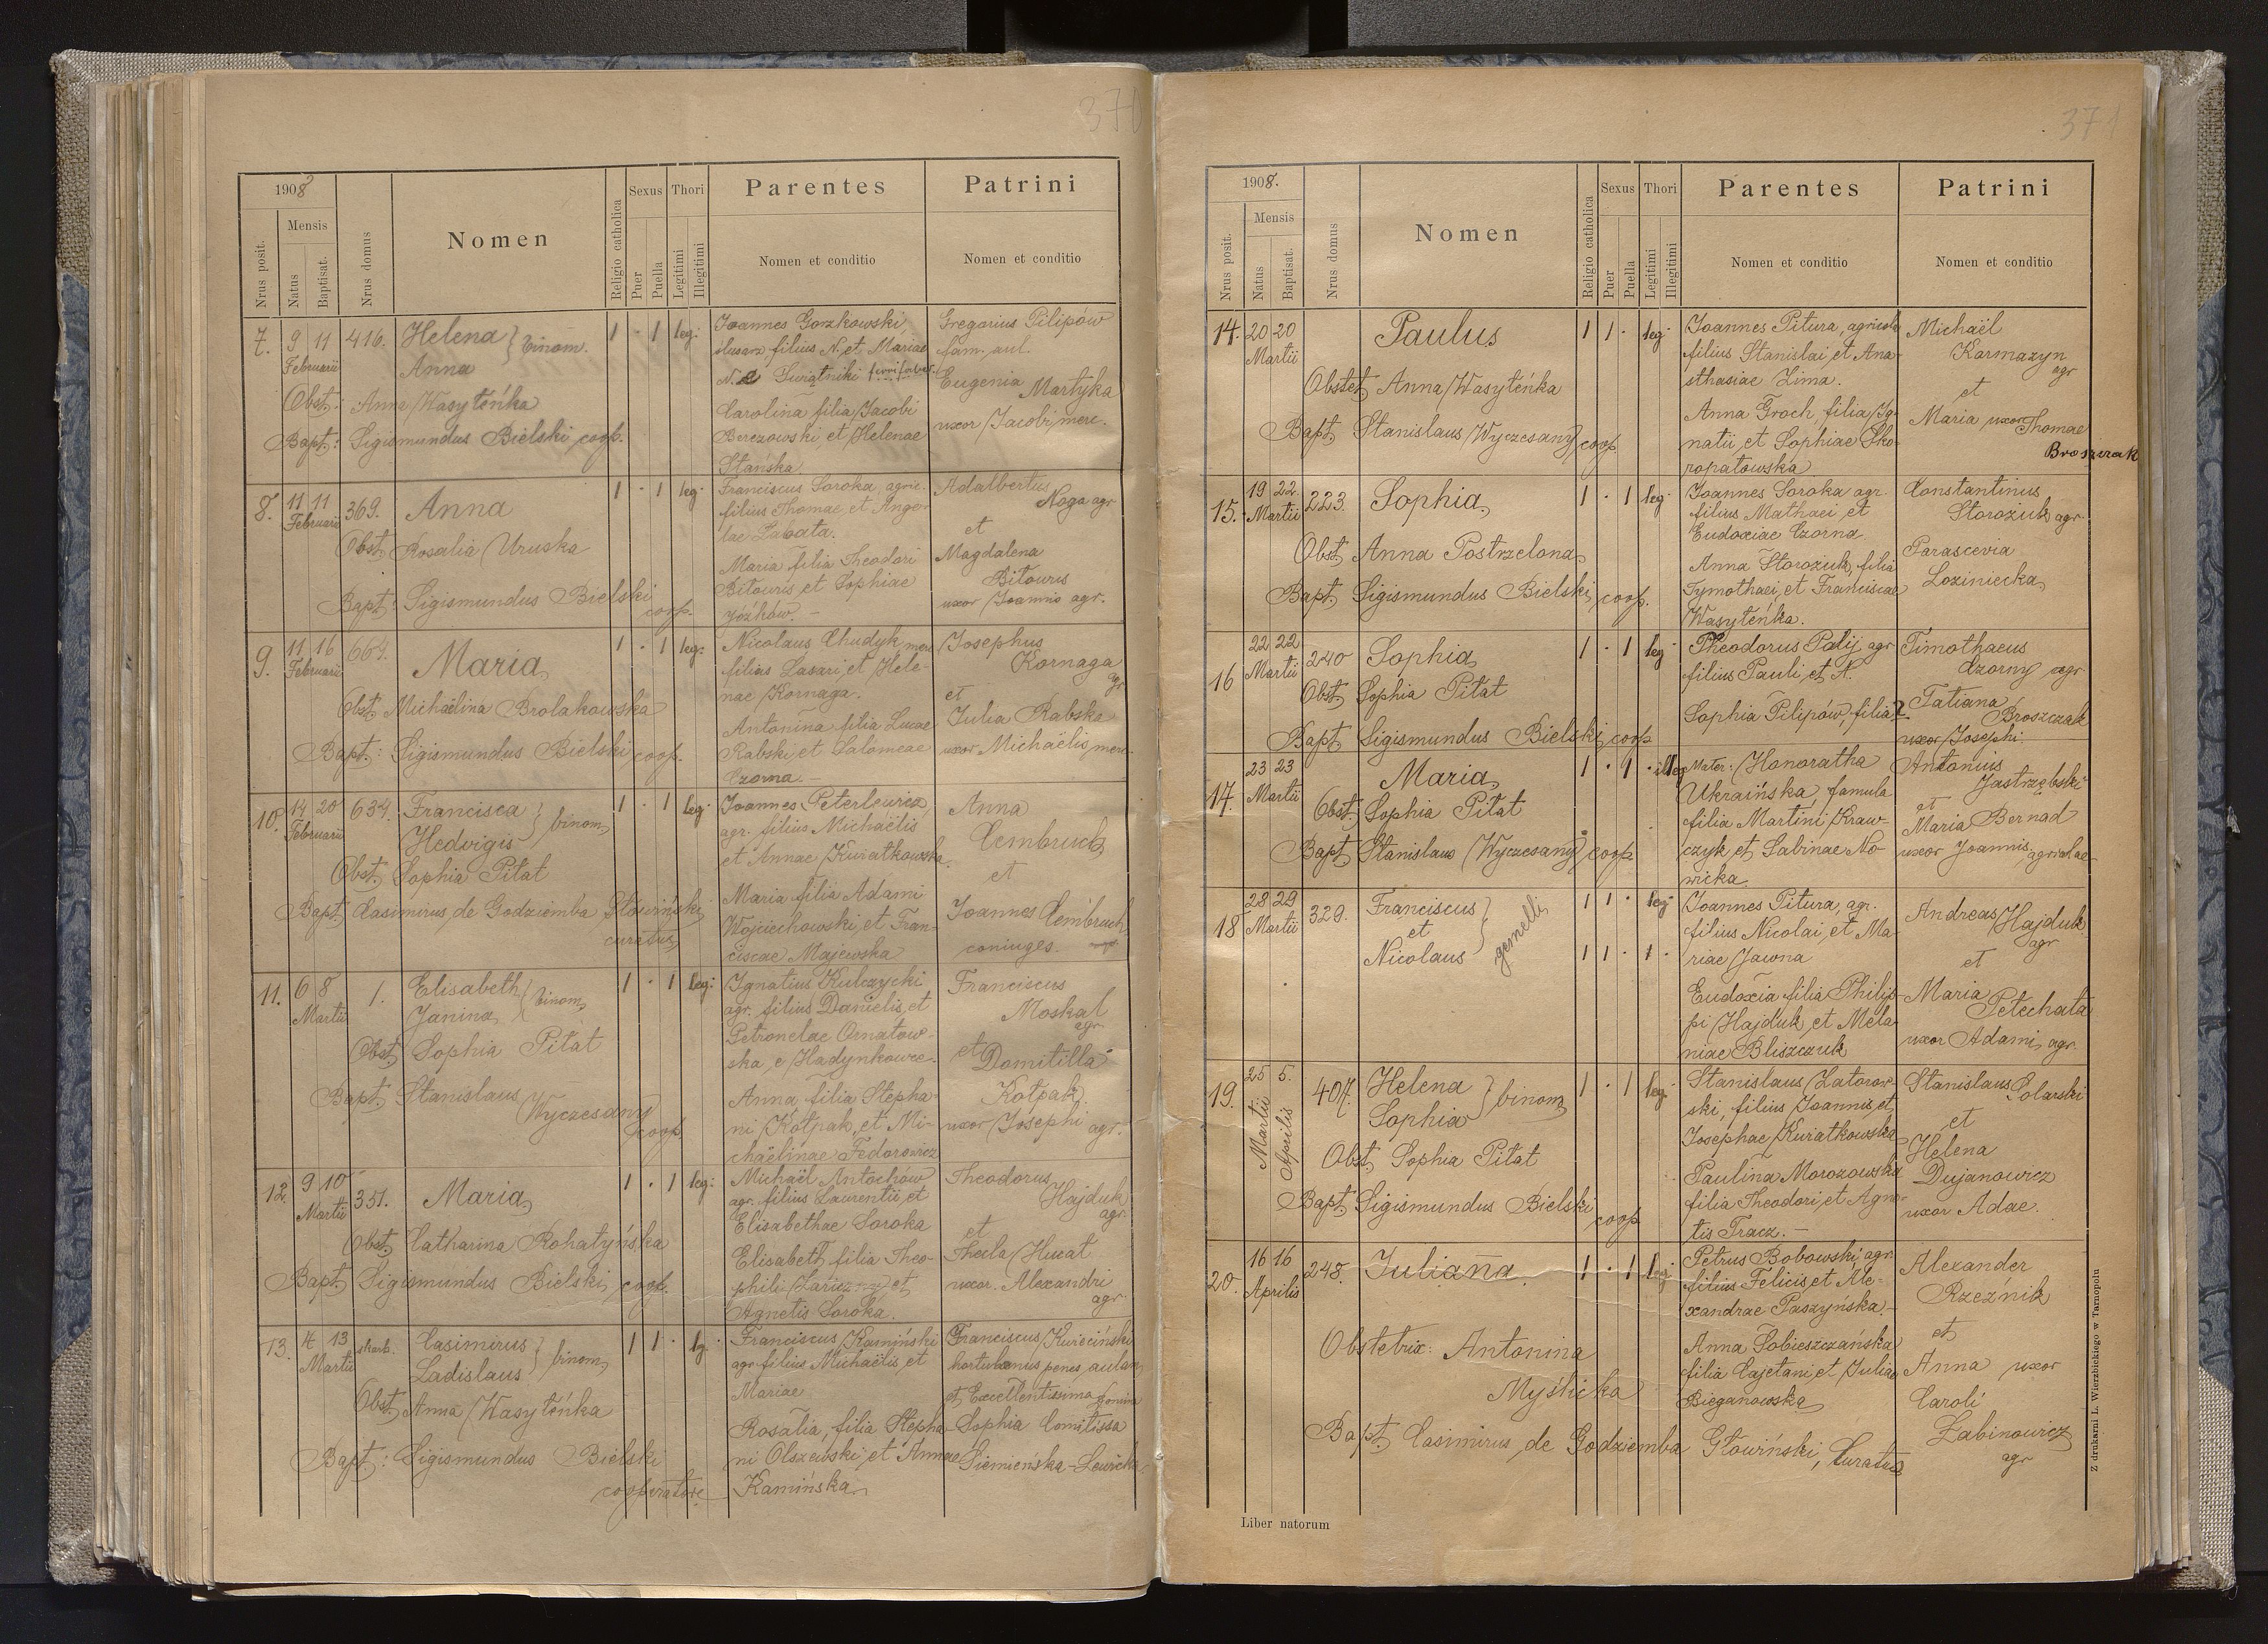 370
1908
Nrus posit.
Mensis
Natus
Baptisat.
Nrus domus
Nomen
Religio catholica
Sexus
Puer
Puella
Thori
Legitimi
Illegitimi
Parentes
Nomen et conditio
Patrini
Nomen et conditio
7.
9 11
Februarii
416.
Helena } binom.
Anna
Obst.: Anna Wasyteńka
Bapt: Sigismundus Bielski coop.
1 · 1 leg:
Joannes Gorzkowski,
ślusarz, filius N. et Mariae
N. Świątniki
Carolina filia Jacobi
Berezowski, et Helenae
Stańska
Gregorius Pilipów
fam. aul.
Eugenia Martyka
uxor Jacobi, merc.
8.
11 11
Februarii
369.
Anna
Obst. Rosalia Uruska
Bapt: Sigismundus Bielski
coop.
1 · 1 leg:
Franciscus Soroka agric.
filius Thomae et Ange-
lae Łabata.
Maria filia Theodori
Bitouris et Sophiae
Józków. —
Adalbertus
Noga agr
et
Magdalena
Bitouris
uxor Joannis agr.
9.
11 16
Februarii
664.
Maria
Obst. Michäelina Brolakowska
Bapt: Sigismundus Bielski coop.
1 · 1 leg:
Nicolaus Chudyk, merc
filius Lasari, et Hele-
nae Kornaga.
Antonina filia Lucae
Rabski et Salomeae
Czorna —
Josephus
Kornaga
agr
et
Julia Rabska
uxor Michaëlis, merc.
10.
14 20
Februarii
634.
Francisca } binom,
Hedvigis
Obst: Sophia Pitat
Bapt. Casimirus de Godziemba Głowiński,
curatus
1 · 1 leg:
Joannes Peterlewicz,
agr. filius Michaëlis
et Annae Kwiatkowska.
Maria filia Adami
Wojciechowski, et Fran-
ciscae Majewska
Anna
Cembruch
et
Joannes Cembruch
coniuges.
11.
6 8
Martii
1.
Elisabeth } binom,
Janina
Obst. Sophia Pitat
Bapt. Stanislaus Wyczesany
coop.
1 · 1 leg:
Ignatius Kulczycki
agr. filius Danielis, et
Petronelae Ornatow-
ska e Hadynkowce.
Anna filia Stepha-
ni Kotpak, et Mi-
chäelinae Fedorowicz
Franciscus
Moskal
agr.
et Domitilla
Kotpak
uxor Josephi agr.
12.
9 10
Martii
351.
Maria
Obst. Catharina Rohatyńska
Bapt. Sigismundus Bielski, coop.
1 · 1 leg:
Michaël Antochów
agr. filius Laurentii, et
Elisabethae Soroka
Elisabeth filia Theo-
phili et
Agnetis Soroka.
Theodorus
Hajduk
agr.
et
Thecla Hucat
uxor. Alexandri
agr.
13.
4 13
Martii
skarb.
Casimirus } binom,
Ladislaus
Obst. Anna Wasyteńka
Bapt: Sigismundus Bielski
cooperatore
1 1 · lg.
Franciscus Kamiński
agr filius Michaëlis et
Mariae
Rosalia, filia Stepha-
ni Olszewski, et Annae
Kamińska
Franciscus Kwieciński
hortulanus penes aulam,
et Excellentissima Domina
Sophia Comitissa
Siemieńska-Lewicka
371
1908.
Nrus posit.
Mensis
Natus
Baptisat.
Nrus domus
Nomen
Religio catholica
Sexus
Puer
Puella
Thori
Legitimi
Illegitimi
Parentes
Nomen et conditio
Patrini
Nomen et conditio
14.
20 20
Martii
Paulus
Obstet. Anna Wasyteńka
Bapt. Stanislaus Wyczesany coop.
1 1 · leg
Joannes Pitura, agricola
filius Stanislai, et Ana-
sthasiae Zima.
Anna Groch, filia Ig-
natii, et Sophiae Sko-
ropatowska
Michaël
Karmazyn
agr
et
Maria uxor Thomae
Broszczak
15.
19 22.
Martii
223.
Sophia
Obst. Anna Postrzelona
Bapt. Sigismundus Bielski, coop.
1 · 1 leg
Joannes Soroka agr.
filius Mathaei et
Eudoxiae Czorna
Anna Storożuk, filia
Tymothaei, et Franciscae
Wasyteńka.
Constantinus
Storożuk agr.
Parascevia
Loziniecka
16
22 22
Martii
240
Sophia
Obst. Sophia Pitat
Bapt. Sigismundus Bielski, coop.
1 · 1 leg
Theodorus Palij agr
filius Pauli, et N.
Sophia Pilipów, filia
Timothaeus
Czorny agr
Tatiana
Broszczak
uxor Josephi
17.
23 23
Martii
Maria
Obst: Sophia Pitat
Bapt. Stanislaus Wyczesany, coop.
1 · 1 · illeg
Mater: Honoratha
Ukraińska, famula
filia Martini Kraw-
czyk, et Sabinae No-
wicka.
Antonius
Jastrzębski
et
Maria Bernad
uxor Joannis agricolae
18
28 29
Martii
329.
Franciscus } gemelli
et
Nicolaus
1 1 · leg
1 1 · 1 ·
Joannes Pitura, agr.
filius Nicolai, et Ma-
riae Jawna
Eudoxia filia Philip-
pi Hajduk, et Mela-
niae Bliszczuk
Andreas Hajduk
agr
et
Maria Petechata
uxor Adami, agr.
19.
25 5.
Martii Aprilis
407.
Helena } binom,
Sophia
Obst. Sophia Pitat
Bapt. Sigismundus Bielski
coop
1 · 1 leg
Stanislaus Zatorow-
ski, filius Joannis, et
Josephae Kwiatkowska
Paulina Morozowska
filia Theodori, et Agne-
tis Tracz. —
Stanislaus Solarski
et
Helena
Dujanowicz
uxor Adae.
20.
16 16
Aprilis
248.
Juliana.
Obstetrix: Antonina
Myślicka
Bapt. Casimirus de Godziemba Głowiński, Curatus
1 · 1 leg
Petrus Bobowski, agr.
filius Felicis, et Ale-
xandrae Paszyńska.—
Anna Sobieszczańska
filia Cajetani, et Julia
Bieganowska
Alexander
Rzeźnik
et
Anna uxor
Caroli
Labinowicz
agr
Liber natorum
Z drukarni L. Wierzbickiego w Tarnopolu